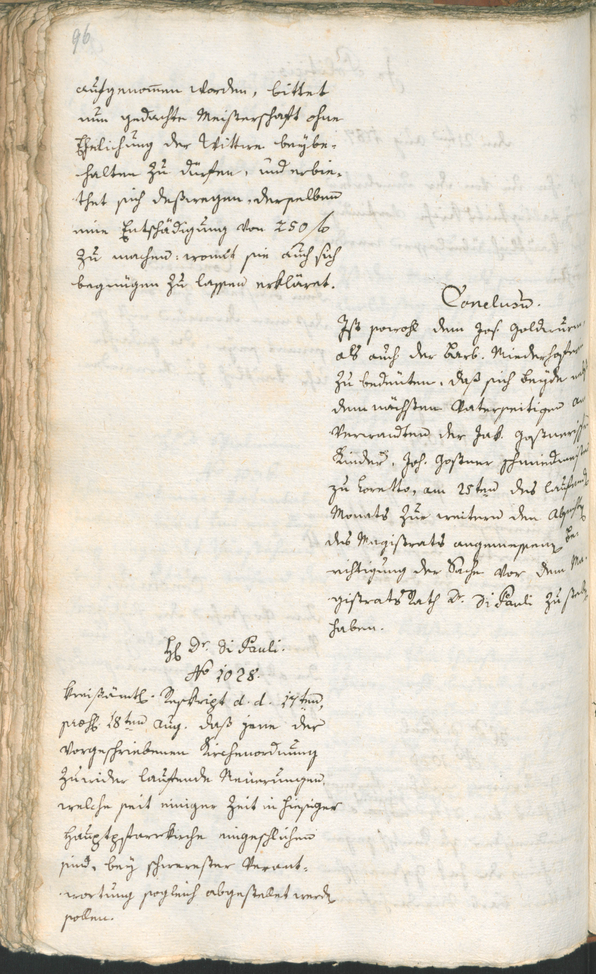 96.
aufgenom̄en worden, bittet
nun gedachte Meisterschaft ohne
Ehelichung der Wittwe beybe-
halten zu dürfen, und erbie-
thet sich deßwegen, derselben
eine Entschädigung von 250 f
zu machen: womit sie auch sich
begnügen zu lassen erkläret.
Conclusũ.
Ist sowohl dem Jos. Goldwurm
als auch der Barb. Niederhofer
zu bedeuten, daß sich beyde mit
dem nächsten Vaterseitigen An-
Verwandten der Jak. Goßnerisch
Kinder, Joh. Goßner Schmiedmeister
zu Loretto, am 25ten des laufend
Monats zur weitern den Absichten
des Magistrats angemessenen Be-
richtigung der Sache vor dem Ma-
gistrats Rath Dr. Di Pauli zu stellen
haben.
H Dr. di Pauli.
No 1028.
Kreisämtl. Reskript d. d. 17ten,
präs. 18ten Aug. daß jene der
vorgeschriebenen Kirchenordnung
zuwider laufende Neuerungen,
welche seit einiger Zeit in hiesiger
Hauptpfarrkirche eingeschlichen
sind, bey schwerester Verant-
wortung sogleich abgestelet werden
sollen.